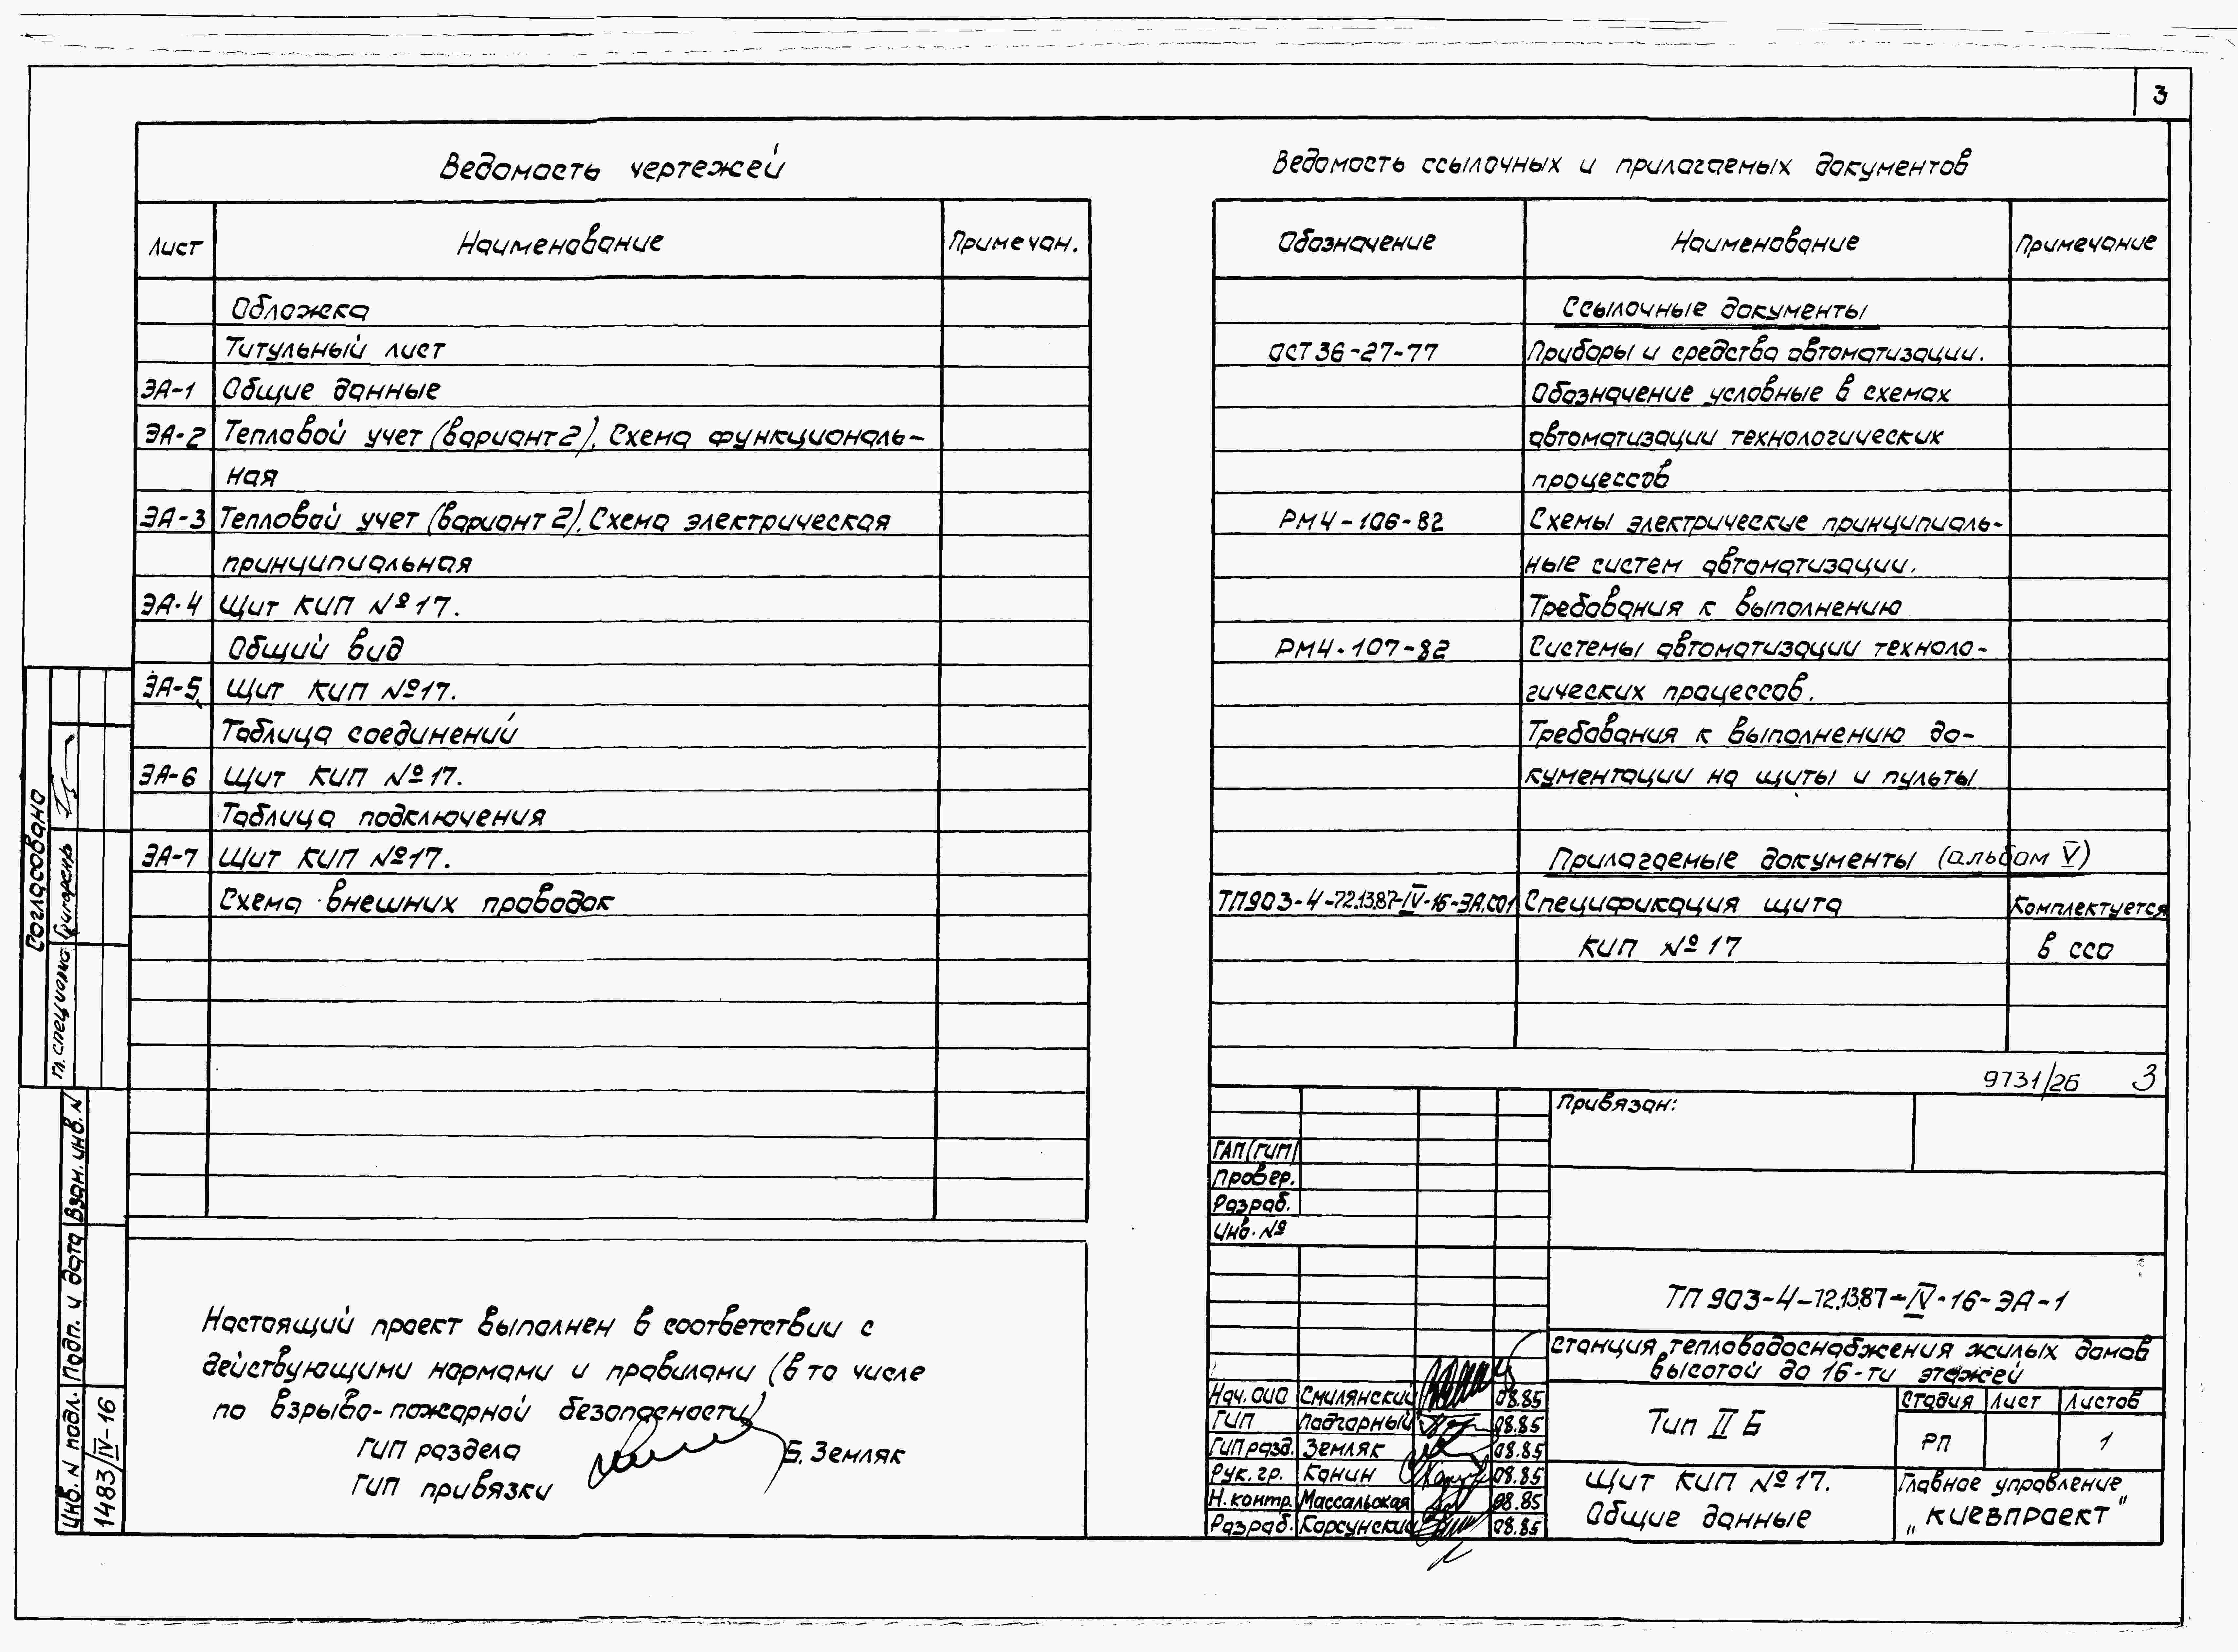 3
Ведомость чертежей
Лист Наименование Примечан.
Обложка
Титульный лист
ЭА-1 Общие данные
ЭА-2 Тепловой учет (вариант 2). Схема функциональ-
ная
ЭА-3 Тепловой учет (вариант 2). Схема электрическая
принципиальная
ЭА-4 Щит КИП №17.
Общий вид
ЭА-5 Щит КИП №17.
Таблица соединений
ЭА-6 Щит КИП №17.
Таблица подключения
ЭА-7 Щит КИП №17.
Схема внешних проводок
Настоящий проект выполнен в соответствии с
действующими нормами и правилами (в то числе
по взрыво-пожарной безопасности)
ГИП раздела Б. Земляк
ГИП привязки
Ведомость ссылочных и прилагаемых документов
Обозначение Наименование Примечание
Ссылочные документы
ОСТ 36-27-77 Приборы и средства автоматизации.
Обозначение условные в схемах
автоматизации технологических
процессов
РМ4-106-82 Схемы электрические принципиаль-
ные систем автоматизации.
Требования к выполнению
РМ4-107-82 Системы автоматизации техноло-
гических процессов.
Требования к выполнению до-
кументации на щиты и пульты
Прилагаемые документы (альбом V)
ТП903-4-72.13.87-IV-16-ЭА.СО1 Спецификация щита Комплектуется
КИП №17 в ссо
9731/26 3
Привязан:
ГАП (ГИП)
Провер.
Разраб.
Инв. №
ТП 903-4-72.13.87-IV-16-ЭА-1
Станция тепловодоснабжения жилых домов
высотой до 16-ти этажей
Нач. ОИО Смилянский 08.85
ГИП Подгорный 08.85
ГИП разд. Земляк 08.85
Рук. гр. Канин 08.85
Н. контр. Массальская 08.85
Разраб. Корсунский 08.85
Тип II Б
Стадия Лист Листов
РП 1
Щит КИП №17.
Общие данные
Главное управление
„Киевпроект"
Согласовано
Гл. специалист
Инв. N подл. Подп. и дата Взам. инв. N
1483/IV-16